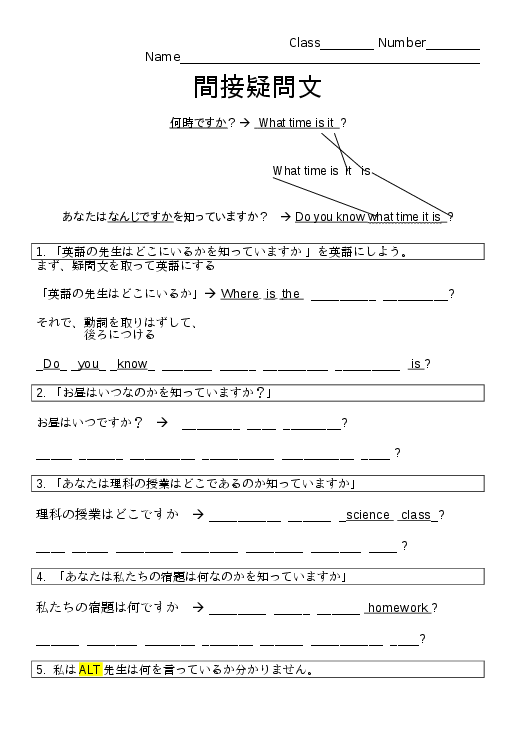 Class________ Number________
Name____________________________________________
間接疑問文
何時ですか？→ What time is it ?
What time is it is
あなたはなんじですかを知っていますか？ →Do you know what time it is ?
1. 「英語の先生はどこにいるかを知っていますか 」を英語にしよう。
まず、疑問文を取って英語にする
「英語の先生はどこにいるか」→ Where is the _________ _________?
それで、動詞を取りはずして、
後ろにつける
_Do_ _you_ _know_ _______ _____ _________ _________ is ?
2. 「お昼はいつなのかを知っていますか？」
お昼はいつですか？ → ________ ____ ________?
_____ ______ _________ __________ __________ ____ ?
3. 「あなたは理科の授業はどこであるのか知っていますか」
理科の授業はどこですか →__________ ______ _science_ _class_?
____ _____ _________ ________ ________ _______ ____ ?
4. 「あなたは私たちの宿題は何なのかを知っていますか」
私たちの宿題は何ですか →________ _____ ______ homework ?
______ _______ ________ _________ _______ ________ ____?
5. 私は ALT 先生は何を言っているか分かりません。